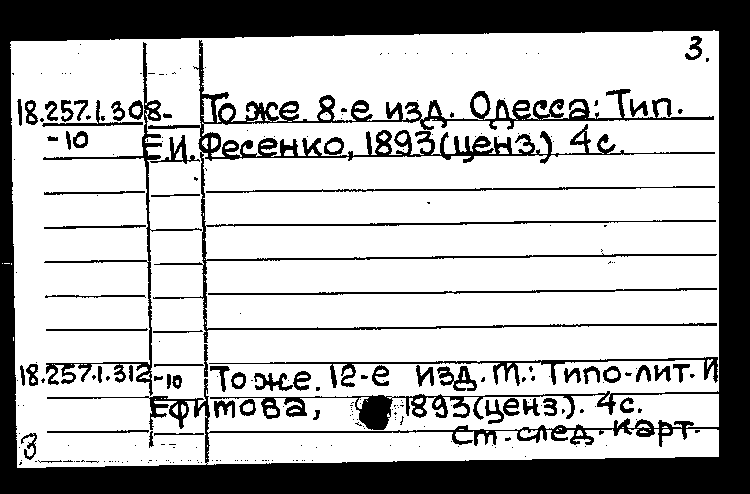 3.
18.257.1.308- То же. 8-е изд. Одесса: Тип.
-10 Е.И. Фесенко, 1893(ценз.). 4с.
18.257.1.312-10 То же. 12-е изд. М.: Типо-лит. И
Ефимова, 1893(ценз.). 4с.
См. след. карт.
3